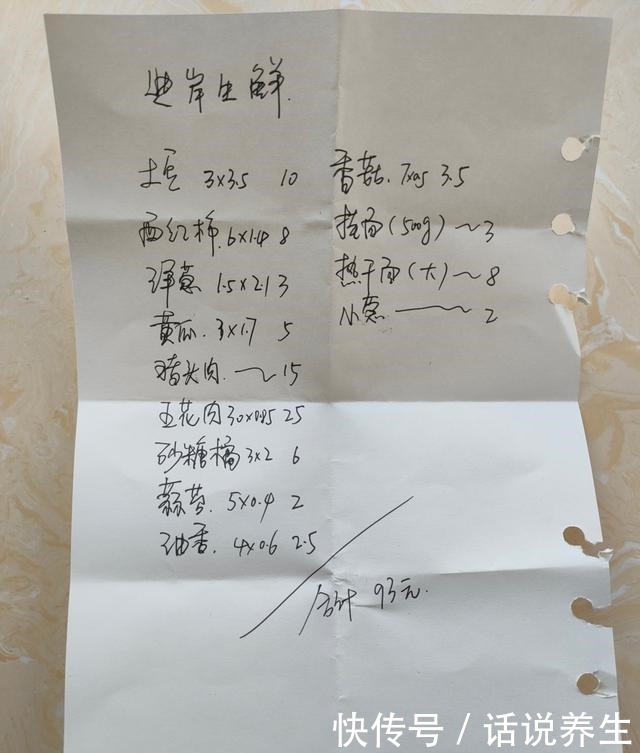 进岸生鲜.
土豆 3x3.5 10
西红柿.6x1.4 8
洋葱 1.5x2.1 3
黄瓜.3x1.7 5
猪头肉.～15
五花肉30x0.85 25
砂糖橘3x2 6
蒜苔.5x0.4 2
油香.4x0.6 2.5
香菇.7x0.5 3.5
挂面(500g)～3
热干面(大)～8
小葱——2
合计 93元.
快传号/话说养生